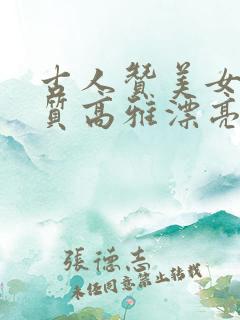 古人赞美女
质高雅漂亮
張德志
未经同意禁止转载